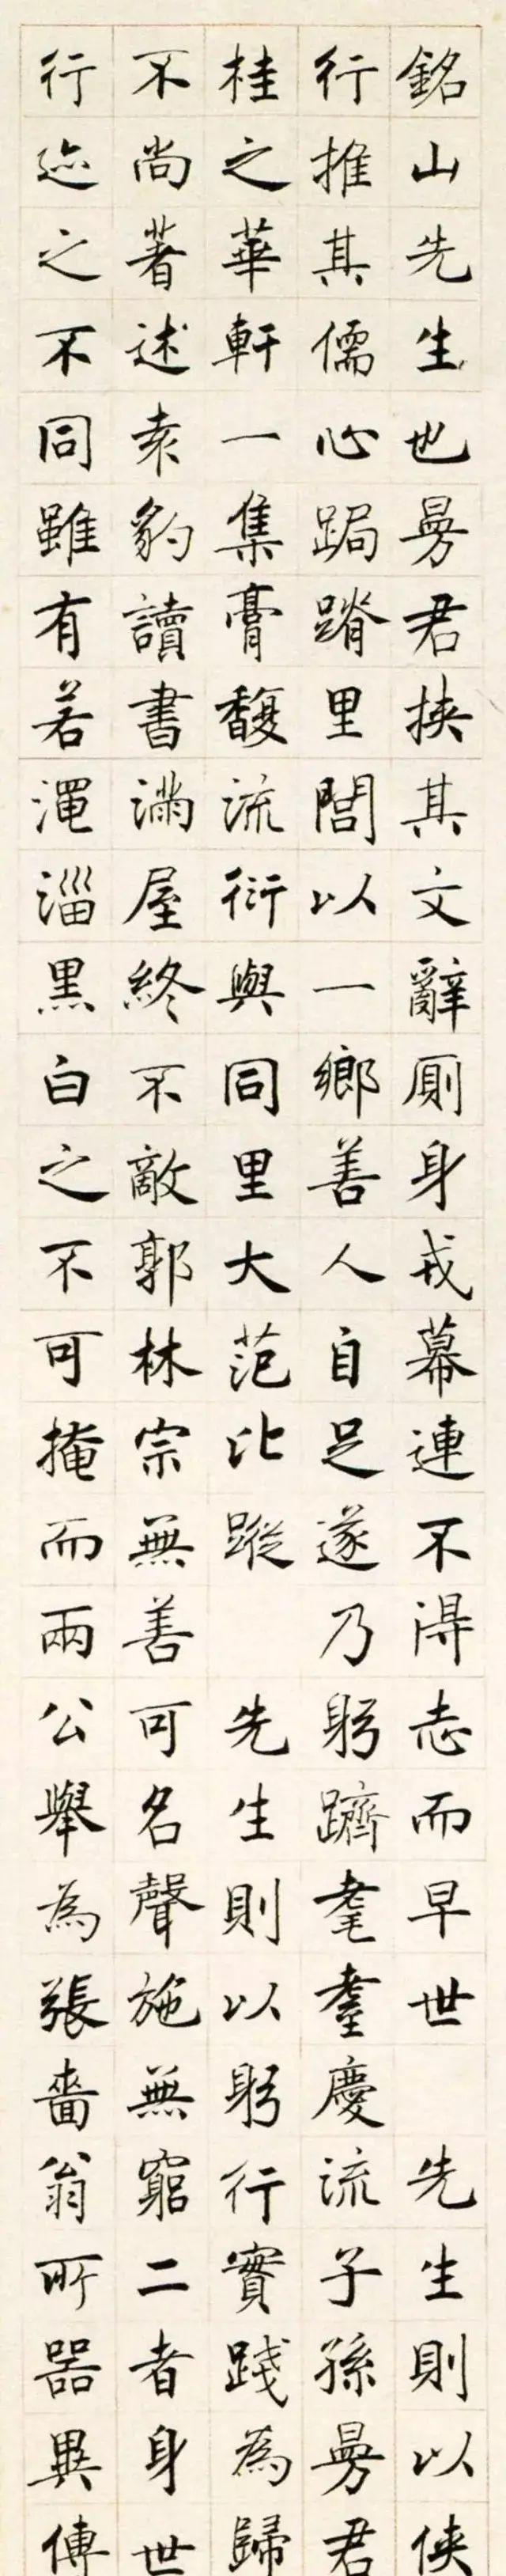 銘山先生也昜君挾其文辭厠身戎幕連不淂志而早世 先生則以俠
行推其儒心跼蹐里閭以一鄉善人自足遂乃躬躋耄耋慶流子孫昜君
桂之華軒一集膏馥流衍與同里大范比蹤 先生則以躬行實踐為歸
不尚著述袁豹讀書滿屋終不敵郭林宗無善可名聲施無窮二者身世
行迹之不同雖有若澠淄黑白之不可掩而兩公舉為張嗇翁所器異傳